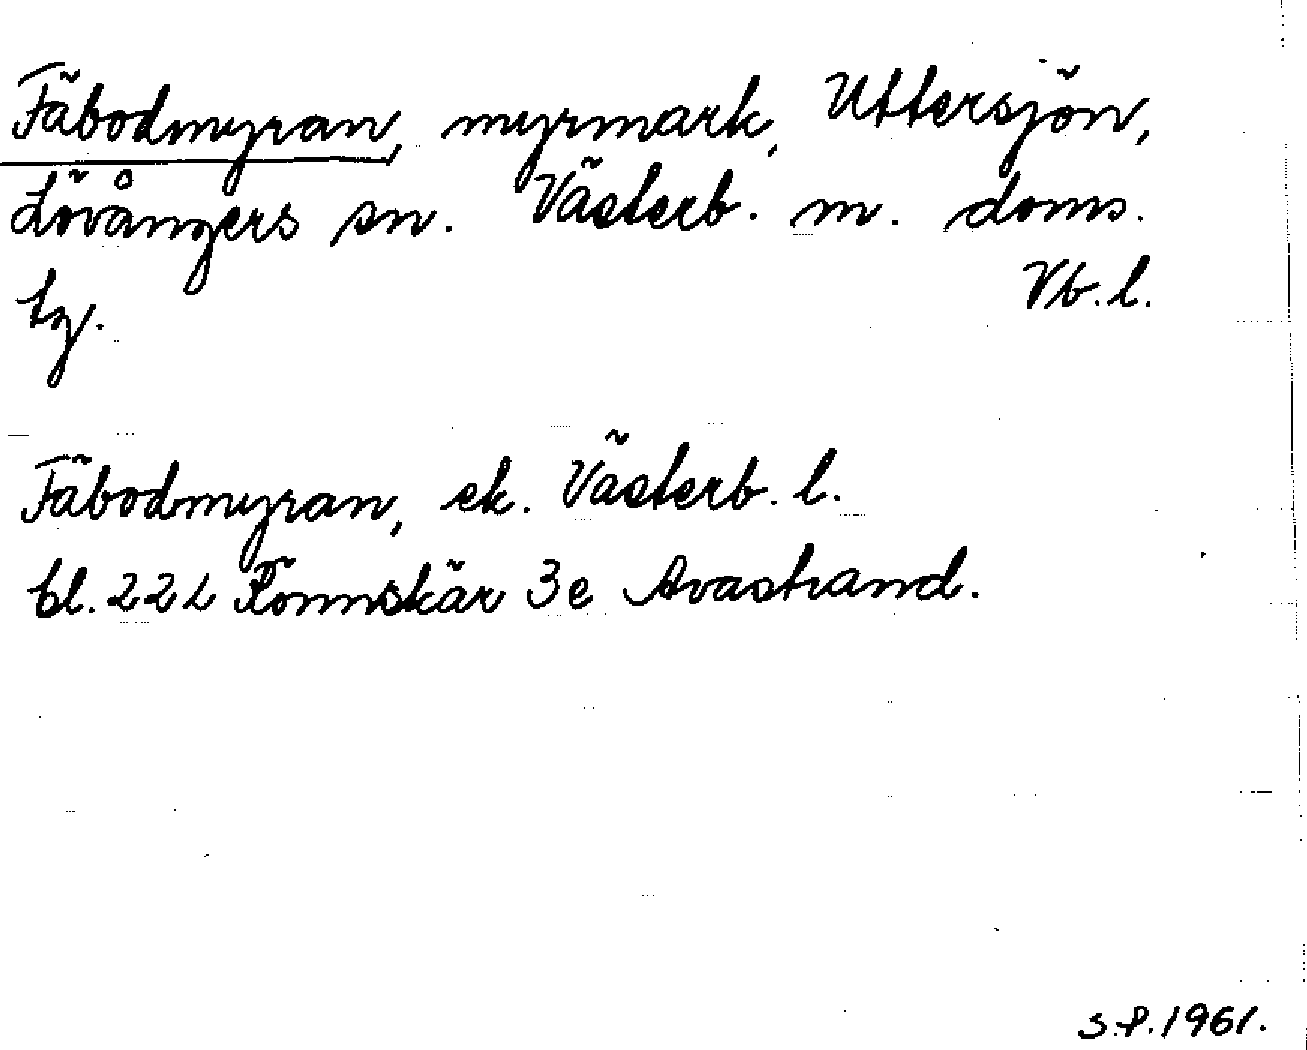 Fäbodmyran, myrmark, Uttersjön,
Lövångers sn. Västerb. m. doms.
tg. Vb. l.
Fäbodmyran, ek. Västerb. l.
bl. 22L Rönnskär 3e Avastrand.
S.P. 1961.